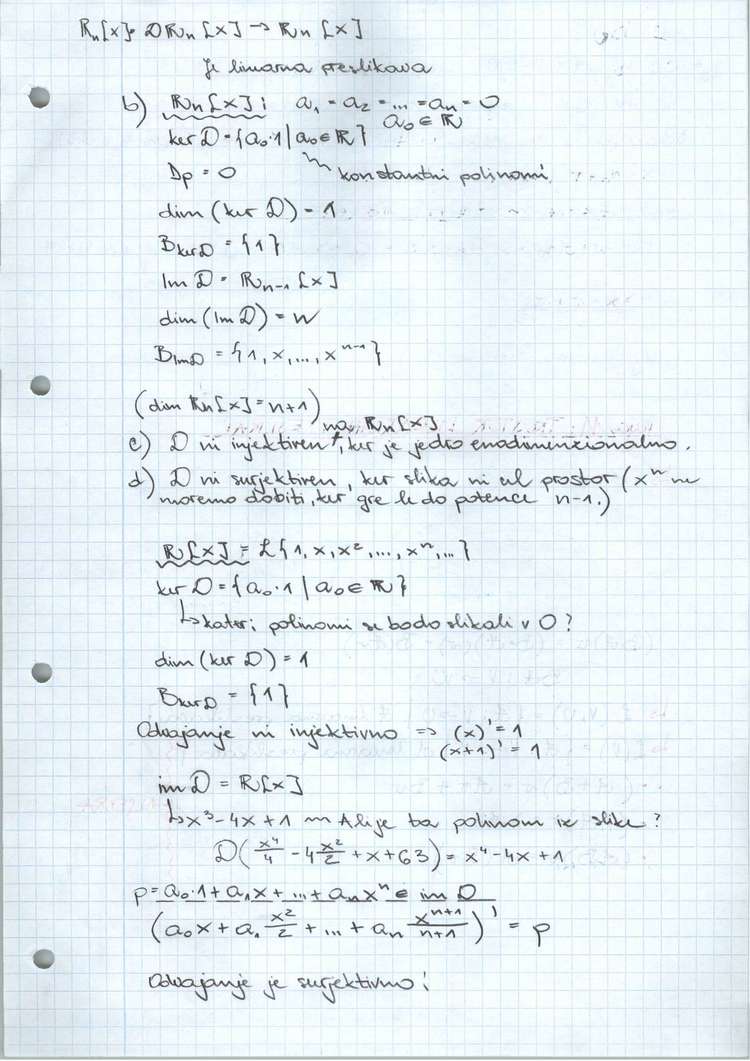 ℝn[x]: D ℝn[x] → ℝn[x]
Je linearna preslikava
b) ℝn[x]: a₁ = a₂ = ... = an = 0
a₀ ∈ ℝ
ker D = {a₀·1 | a₀ ∈ ℝ}
Dp = 0 konstantni polinomi
dim (ker D) = 1
B_kerD = {1}
Im D = ℝn-1 [x]
dim (Im D) = n
B_ImD = {1, x, ..., x^(n-1)}
(dim ℝn[x] = n+1)
na ℝn[x]
c) D ni injektiren, ker je jedro enodimenzionalno.
d) D ni surjektiren, ker slika ni cel prostor (xⁿ ne
moremo dobiti, ker gre le do potence n-1.)
ℝ[x] = ℒ{1, x, x², ..., xⁿ, ...}
ker D = {a₀·1 | a₀ ∈ ℝ}
↳ kateri polinomi se bodo slikali v 0?
dim (ker D) = 1
B_kerD = {1}
Odvajanje ni injektivno ⇒ (x)' = 1
(x+1)' = 1
im D = ℝ[x]
↳ x³ - 4x + 1 Ali je ta polinom iz slike?
D(x⁴/4 - 4x²/2 + x + 63) = x⁴ - 4x + 1
p = a₀·1 + a₁x + ... + anxⁿ ∈ im D
(a₀x + a₁ x²/2 + ... + an x^(n+1)/(n+1))' = p
Odvajanje je surjektivno!